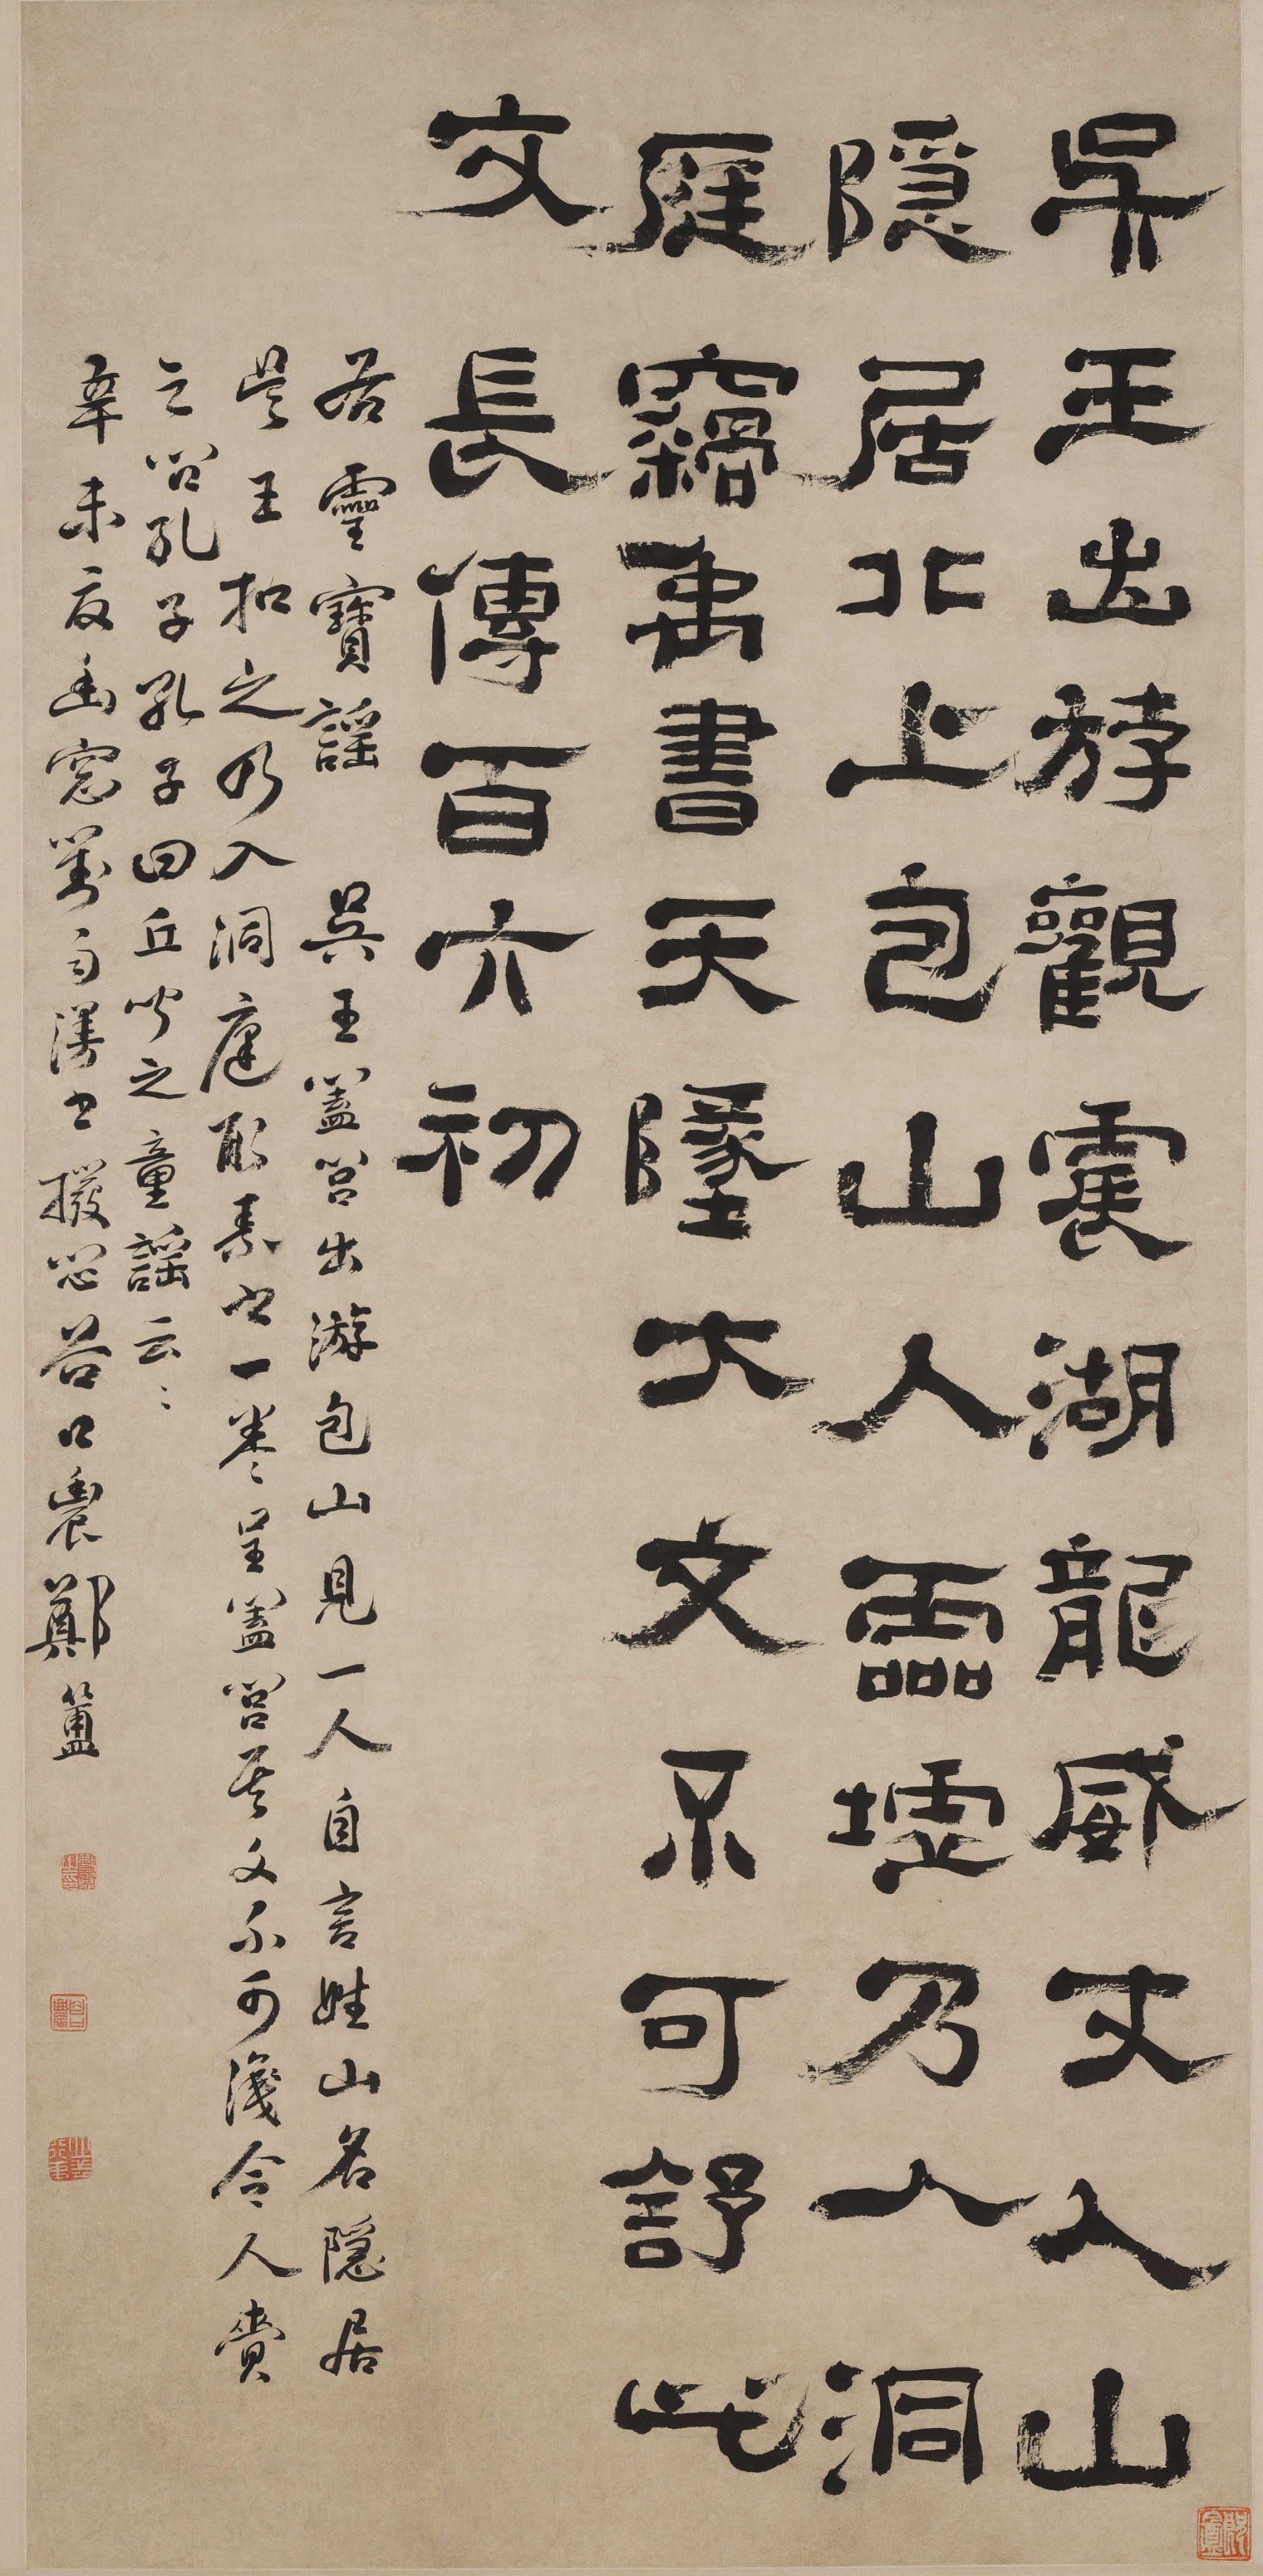 吳王出游觀震湖龍威丈人山
隱居北上包山人靈墟乃入洞
庭竊禹書天墜大文不可舒此
文長傳百六初
右靈寶謠 吳王蓋閭出游包山見一人自言姓山名隱居
吳王扣之乃入洞庭取素書一卷呈蓋閭其文不可識令人賫
之問孔子孔子曰丘聞之童謠云〻
辛未夏幽窓對雨漫書撥悶谷口農鄭簠